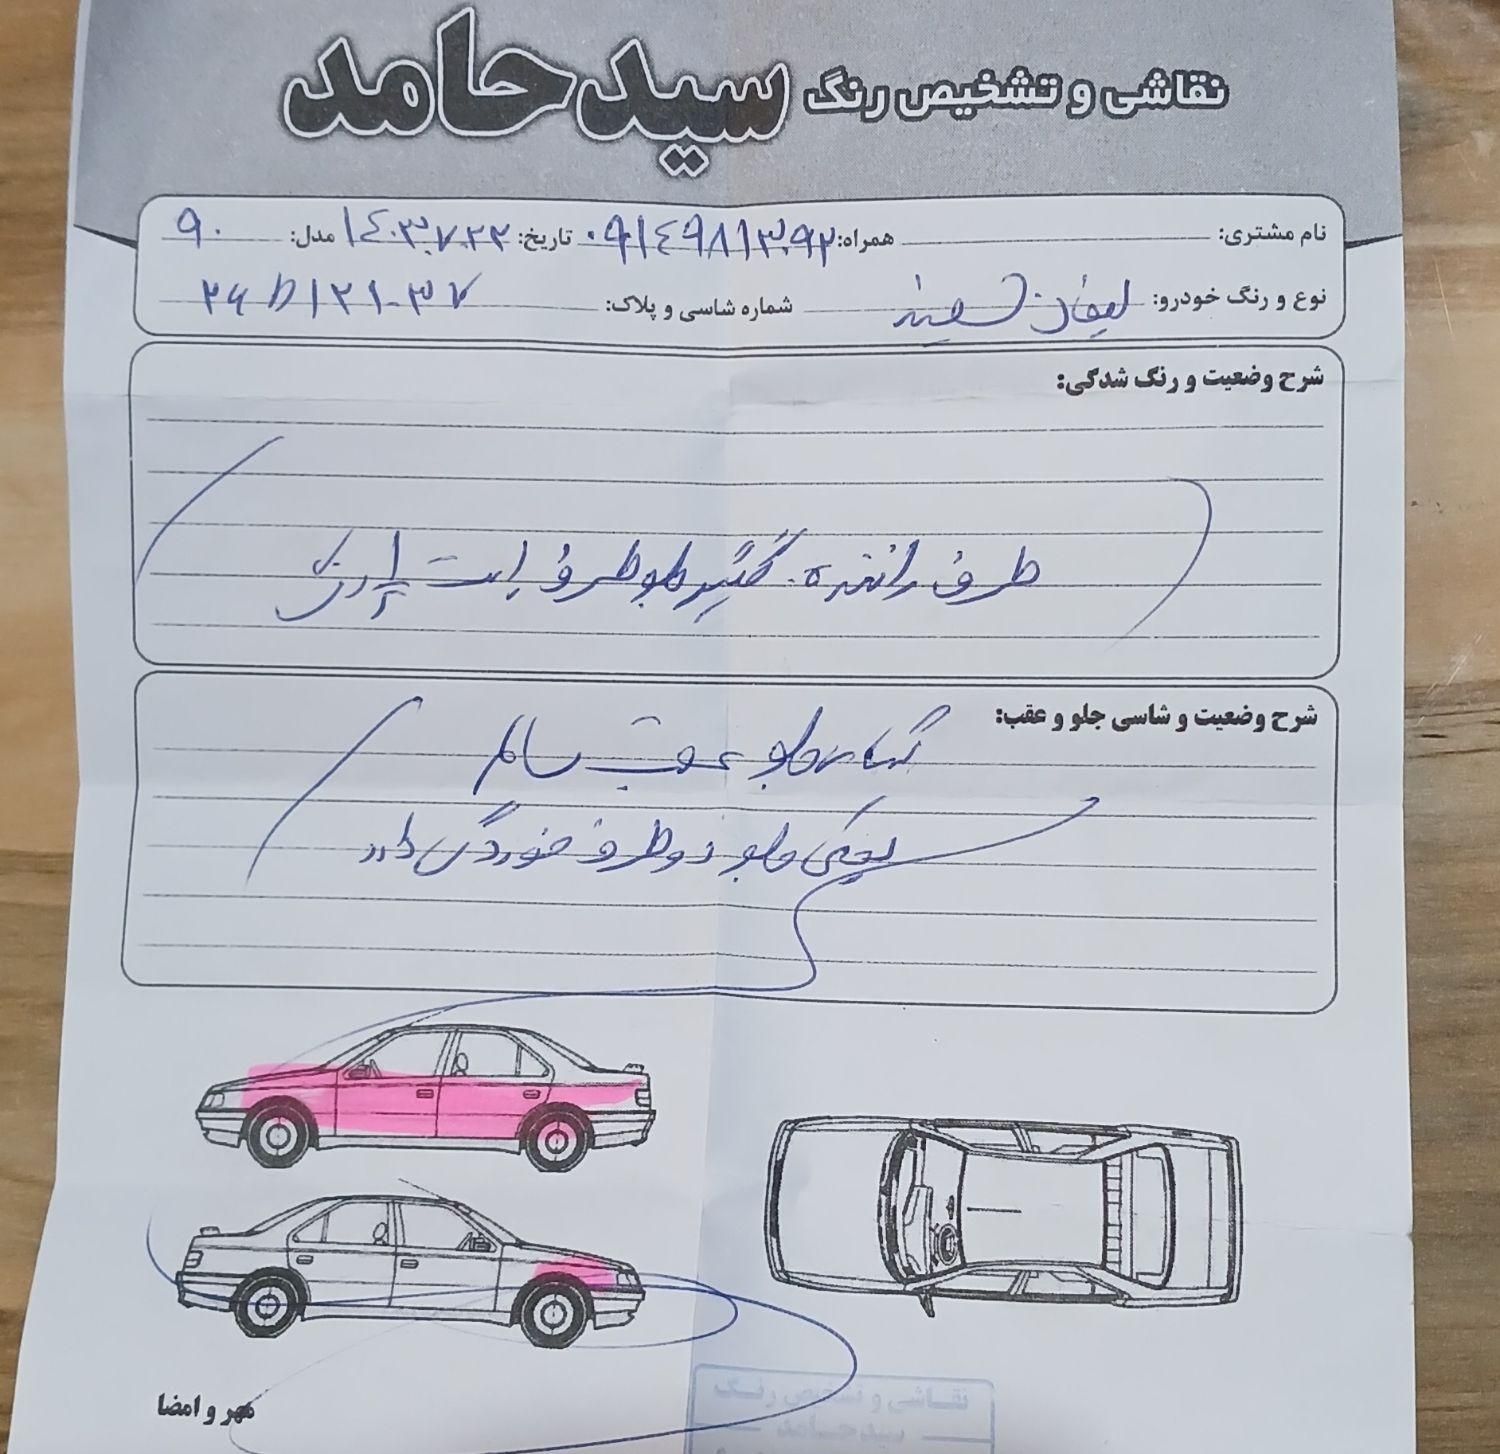 نقاشی و تشخیص رنگ سیدحامد
نام مشتری: همراه: ۰۹۱۴۹۸۱۳۰۹۲ تاریخ: ۱۴۰۳.۷.۲۲ مدل: ۹۰
نوع و رنگ خودرو: لیفان سفید شماره شاسی و پلاک:
شرح وضعیت و رنگ شدگی:
طرف راننده. گلگیر جلو طرف راست
شرح وضعیت و شاسی جلو و عقب:
جلو عقب سالم
جلو دو طرف خوردگی دارد
مهر و امضا
نقاشی و تشخیص رنگ
سیدحامد